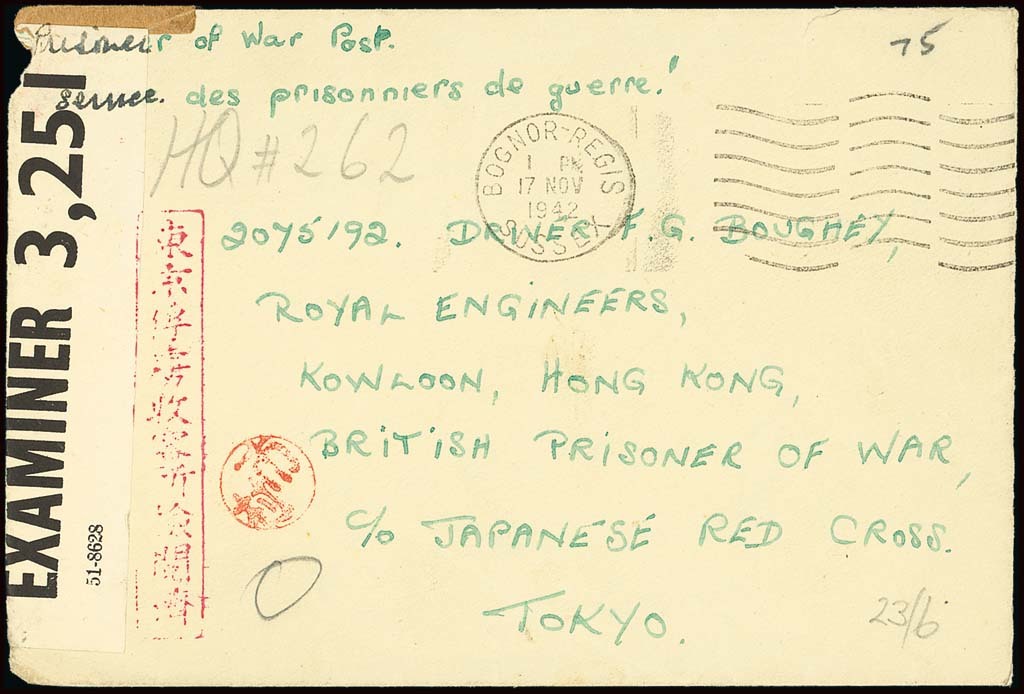 Prisoner of War Post.
Service des prisonniers de guerre!
75
HQ # 262
BOGNOR-REGIS
1 PM
17 NOV
1942
SUSSEX
2075192. DRIVER F.G. BOUGHEY,
ROYAL ENGINEERS,
KOWLOON, HONG KONG,
BRITISH PRISONER OF WAR,
c/o JAPANESE RED CROSS.
TOKYO.
23/6
EXAMINER 3,251
51-8628
東京俘虜收容所検閲濟